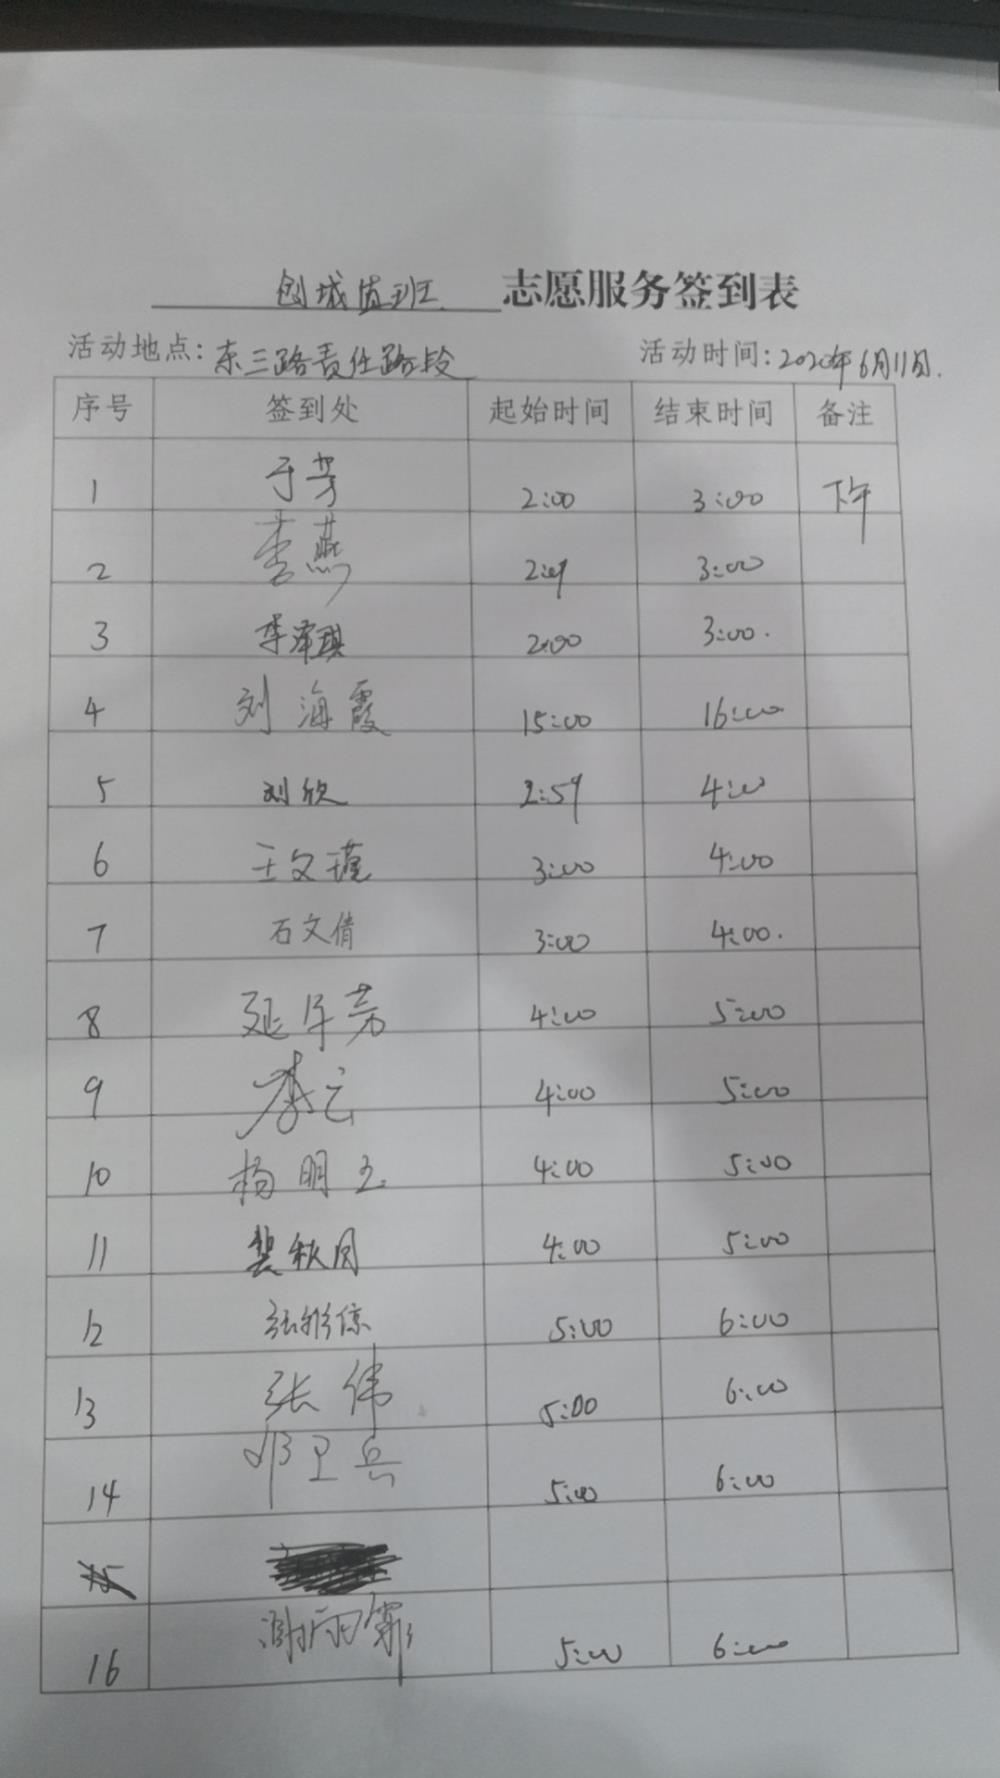 创城值班 志愿服务签到表
活动地点: 东三路责任路段 活动时间: 2020年6月11日.
序号 签到处 起始时间 结束时间 备注
1 于芳 2:00 3:00 下午
2 李燕 3:00
3 李泽琪 2:00 3:00.
4 刘海霞 15:00 16:00
5 刘欣 2:59 4:00
6 王文瑾 3:00 4:00
7 石文倩 3:00 4:00.
8 延年芳 4:00 5:00
9 李云 4:00 5:00
10 杨明玉 4:00 5:00
11 裴秋月 4:00 5:00
12 5:00 6:00
13 张伟 5:00 6:00
14 邓卫兵 5:00 6:00
15
16 5:00 6:00